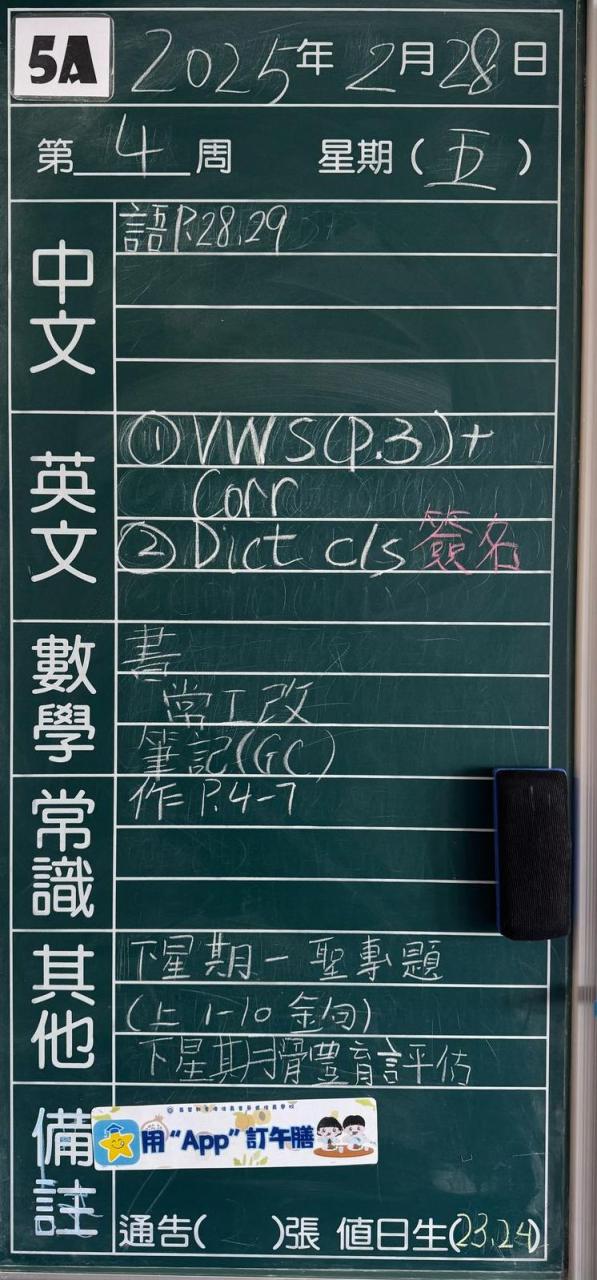 5A 2025年2月28日
第 4 周 星期(五)
中文
語P.28,29
英文
①VWS(P.3)+
Corr
②Dict cls 簽名
數學
書
常工改
筆記(GC)
常識
作 P.4-7
其他
下星期一聖專題
(上 1-10 金句)
下星期 體育評估
備註
用“App”訂午膳
通告( )張 值日生(23.24)